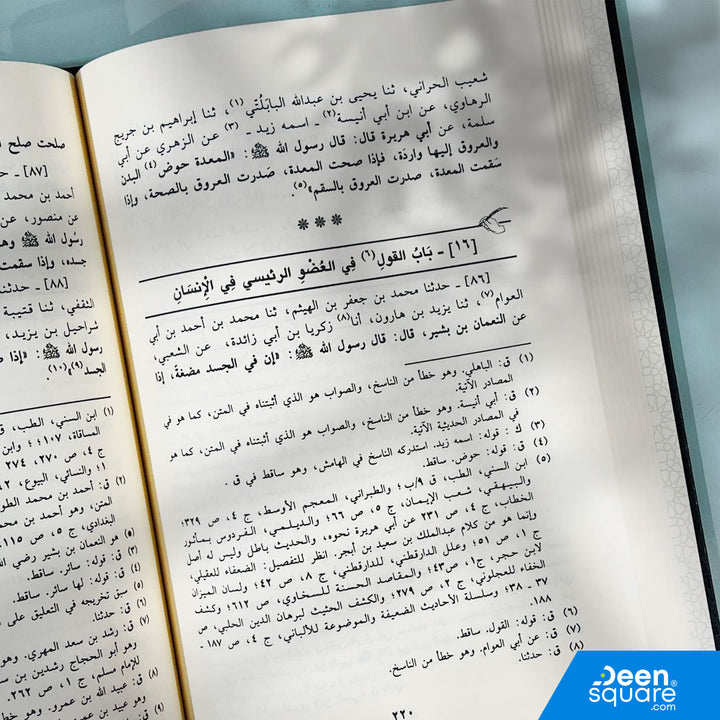 شعيب الحراني، ثنا يحيى بن عبدالله البابَلُتّي (١)، ثنا إبراهيم بن جريج
الرهاوي، عن ابن أبي أنيسة(٢) ـ اسمه زيد ـ (٣) عن الزهري عن أبي
سلمة، عن أبي هريرة قال: قال رسول الله ﷺ: «المعدة حوض (٤) البدن
والعروق إليها واردَة، فإذا صحت المعدة، صَدرت العروق بالصحة، وإذا
سَقمت المعدة، صدرت العروق بالسقم»(٥).
* * *
[١٦] ـ بَابُ القولِ(٦) فِي العُضْوِ الرئيسي فِي الْإِنسَانِ
[٨٦] ـ حدثنا محمد بن جعفر بن الهيثم، ثنا محمد بن أحمد بن أبي
العوام(٧)، ثنا يزيد بن هارون، أنا(٨) زكريا بن أبي زائدة، عن الشعبي،
عن النعمان بن بشير، قال: قال رسول الله ﷺ: «إن في الجسد مضغةً، إذا
(١) ق: الباهلي. وهو خطأ من الناسخ، والصواب هو الذي أثبتناه في المتن، كما هو في
المصادر الآتية.
(٢) ق: أبي أنيسة. وهو خطأ من الناسخ، والصواب هو الذي أثبتناه في المتن، كما هو
في المصادر الحديثية الآتية.
(٣) ك: قوله: اسمه زيد. استدركه الناسخ في الهامش، وهو ساقط في ق.
(٤) ق: قوله: حوض. ساقط.
(٥) ابن السني، الطب، ق ٩/ب؛ والطبراني، المعجم الأوسط، ج ٤، ص ٣٢٩؛
والبيهقي، شعب الإيمان، ج ٥، ص ٦٦؛ والديلمي، الفردوس بمأثور
الخطاب، ج ٤، ص ٢٣١ عن أبي هريرة نحوه، والحديث باطل وليس له أصل
وإنما هو من كلام عبدالملك بن سعيد بن أبجر. انظر للتفصيل: الضعفاء للعقيلي،
ج ١، ص ٥١؛ وعلل الدارقطني، للدارقطني، ج ٨، ص ٤٢؛ ولسان الميزان
لابن حجر، ج١، ص٤٣؛ والمقاصد الحسنة للسخاوي، ص ٦١٢؛ وكشف
الخفاء للعجلوني، ج ٢، ص ٢٧٩؛ والكشف الحثيث لبرهان الدين الحلبي، ص
٣٧ ـ ٣٨؛ وسلسلة الأحاديث الضعيفة والموضوعة للألباني، ج ٤، ص ١٨٧ ـ
١٨٨.
(٦) ق: قوله: القول. ساقط.
(٧) ق: عن أبي العوام. وهو خطأ من الناسخ.
(٨) ق: حدثنا.
٢٢٠
[٨٧] ـ
أحمد بن محمد
عن منصور، عن
رسُول الله ﷺ
جسده، وإذا سقمت
[٨٨] ـ حدثنا
الثقفي، ثنا قتيبة
شراحيل بن يزيد،
رسول الله ﷺ: «إذا
الجسد(٩)»(١٠).
(١) ابن السني، الطب،
المساقاة، ١٠٧؛
ج ٤، ص ٢٧٠، ٢٧٤
والنسائي، البيوع،
(٢) ق: أحمد بن محمد
المتن، وهو أحمد بن
البغدادي، ج ٥، ص ١١٥
(٣) هو النعمان بن بشير رضي
(٤) ق: قوله: سائر. ساقط.
(٥) ق: قوله: لها سائر.
سبق تخريجه في التعليق على
(٦) ق: حدثنا.
(٧) ق: رشد بن سعد المهري.
وهو أبو الحجاج رشدين بن
للإمام مسلم، ج ١، ص ٢٦٢.
(٨) ق: عبيد الله بن عمرو.
وهو عبيد
Deen
square®
.com